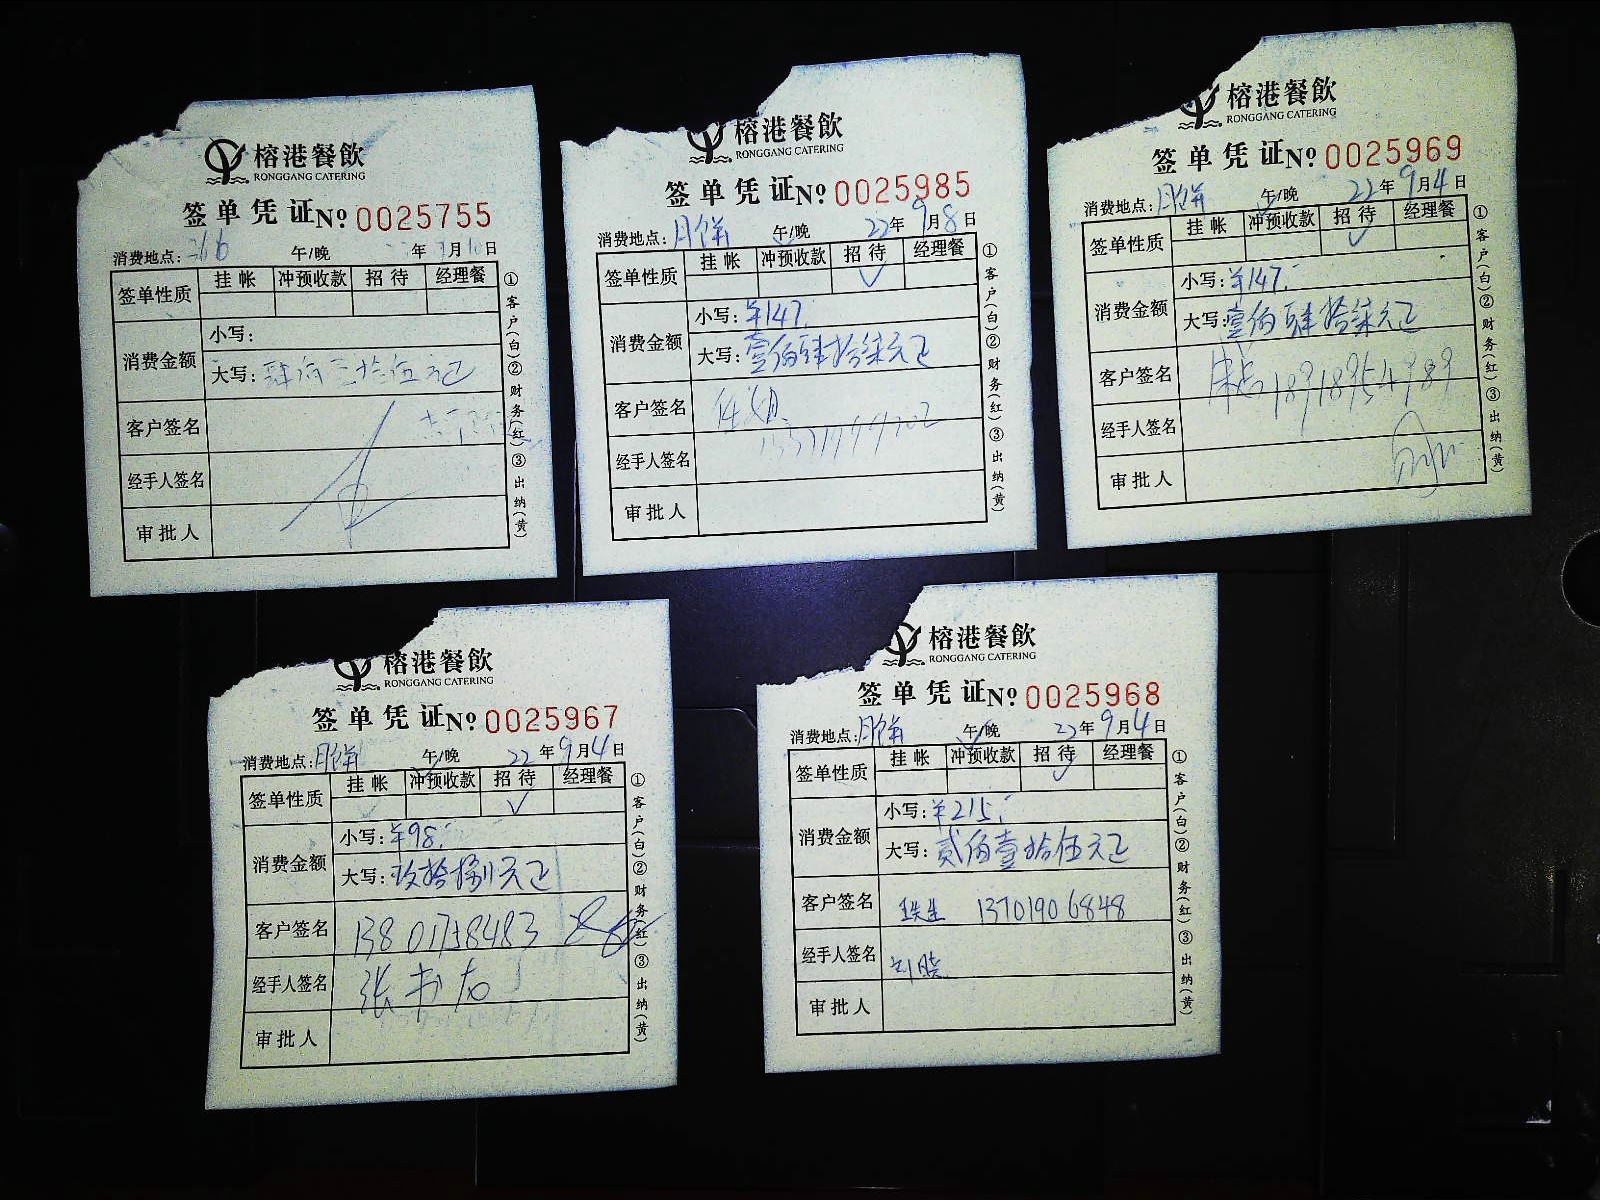 榕港餐飲
RONGGANG CATERING
签单凭证 No 0025755
消费地点: 午/晚 年 月 日
签单性质 挂帐 冲预收款 招待 经理餐
消费金额 小写:
大写: 肆佰三拾伍元正
客户签名
经手人签名
审批人
①客户(白)②财务(红)③出纳(黄)
榕港餐飲
RONGGANG CATERING
签单凭证 No 0025985
消费地点: 月饼 午/晚 22年9月8日
签单性质 挂帐 冲预收款 招待 经理餐
消费金额 小写: ¥147.
大写: 壹佰肆拾柒元正
客户签名
经手人签名
审批人
①客户(白)②财务(红)③出纳(黄)
榕港餐飲
RONGGANG CATERING
签单凭证 No 0025969
消费地点: 月饼 午/晚 22年9月4日
签单性质 挂帐 冲预收款 招待 经理餐
消费金额 小写: ¥147.
大写: 壹佰肆拾柒元正
客户签名 18918954989
经手人签名
审批人
①客户(白)②财务(红)③出纳(黄)
榕港餐飲
RONGGANG CATERING
签单凭证 No 0025967
消费地点: 月饼 午/晚 22年9月4日
签单性质 挂帐 冲预收款 招待 经理餐
消费金额 小写: ¥98.
大写: 玖拾捌元正
客户签名 13801758483
经手人签名 张
审批人
①客户(白)②财务(红)③出纳(黄)
榕港餐飲
RONGGANG CATERING
签单凭证 No 0025968
消费地点: 月饼 午/晚 22年9月4日
签单性质 挂帐 冲预收款 招待 经理餐
消费金额 小写: ¥215.
大写: 贰佰壹拾伍元正
客户签名 13701906848
经手人签名 刘晓
审批人
①客户(白)②财务(红)③出纳(黄)